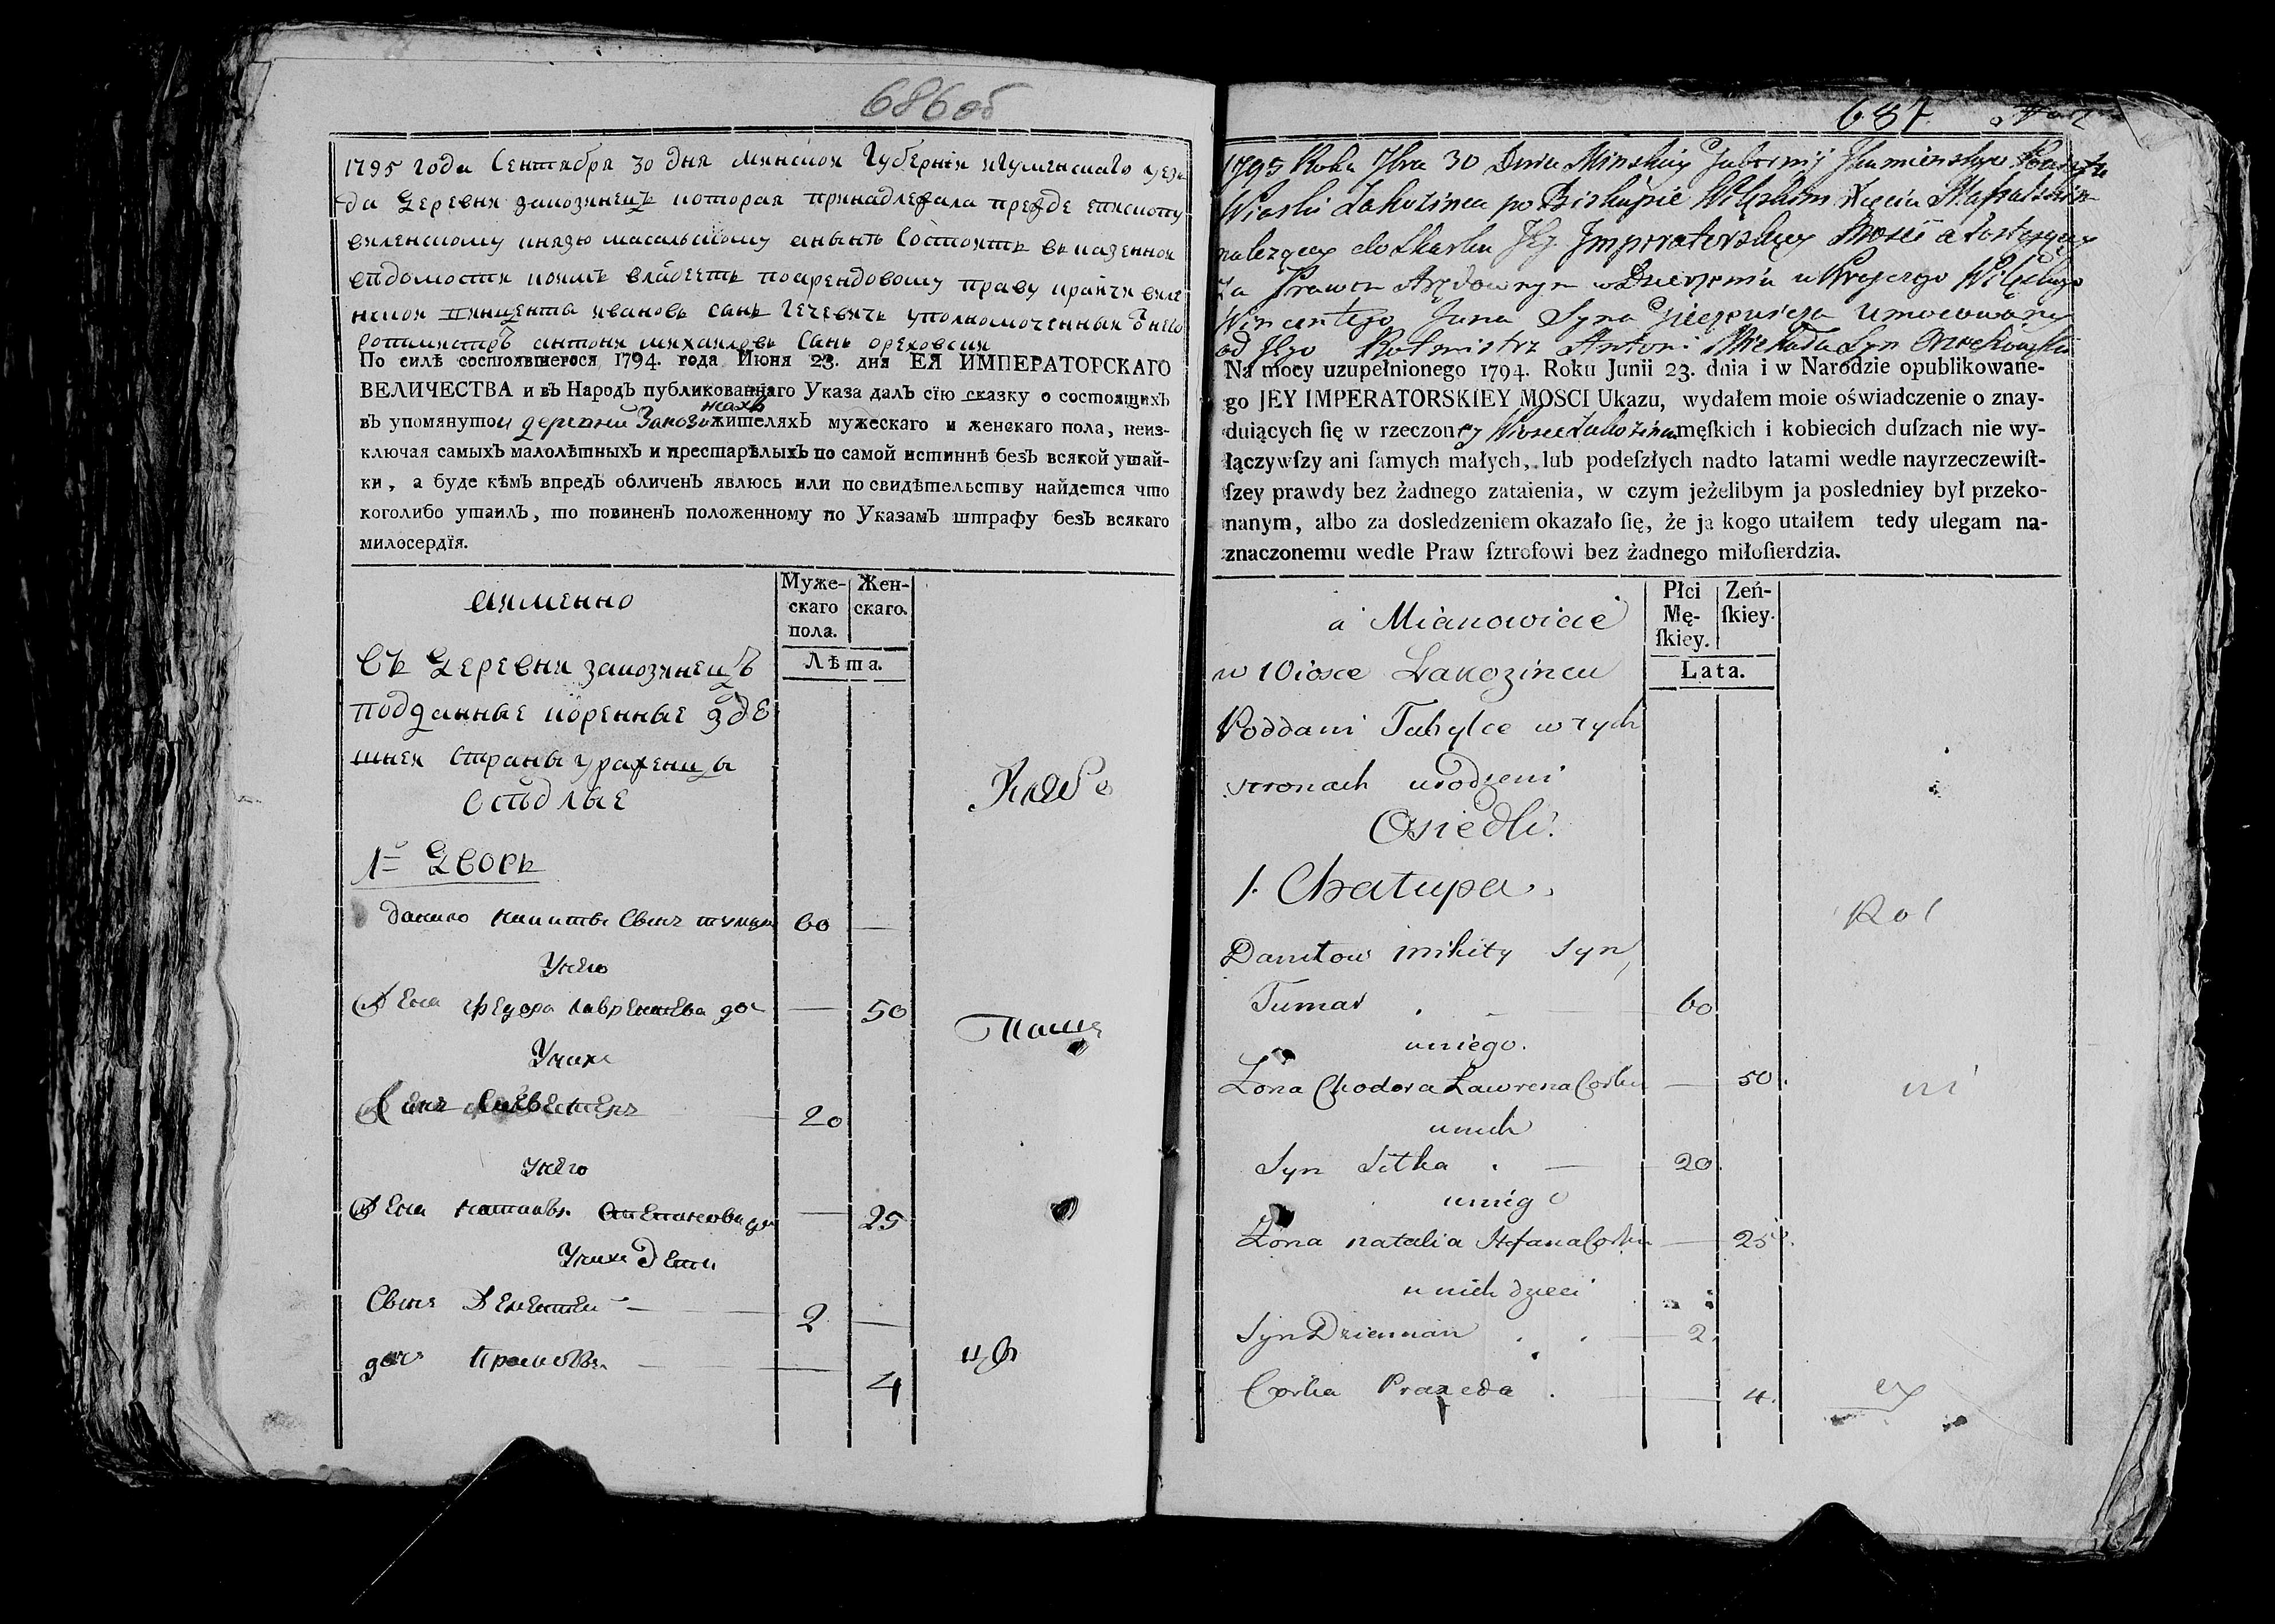 686об
1795 года Сентября 30 дня минской Губернии игуменскаго уез
да деревни закозинецъ которая принадлежала прежде епископу
виленскому князю масальскому анынѣ Состоитъ въ казенной
вѣдомости коимъ владеетъ поарендовому праву крайчи виле
нской винцента ивановъ Сынъ гечевичъ уполномоченный Ѿнего
ротмистръ антони михаиловъ Сынъ ореховски
По силѣ состоявшегося 1794. года Июня 23. дня ЕЯ ИМПЕРАТОРСКАГО
ВЕЛИЧЕСТВА и въ Народъ публикованнаго Указа далъ сїю сказку о состоящихъ
въ упомянутой деревни Закози жителяхъ мужескаго и женскаго пола, неиз-
ключая самыхъ малолѣтныхъ и престарѣлыхъ по самой истиннѣ безъ всякой утай-
ки, а буде кѣмъ впредъ обличенъ явлюсь или по свидѣтельству найдется что
коголибо утаилъ, то повиненъ положенному по Указамъ штрафу безъ всякаго
милосердїя.
аименно
Муже-скаго пола.
Жен-скаго.
Лѣта.
Въ деревни закозинецъ
подданные коренные зде
шней страны уроженцы
Осѣдлые
1й дворъ
данило никитъ Сынъ тумар 60 —
Унего
Жена федора лаврентева доч — 50
Унихъ
Сынъ Силвестеръ 20
унего
Жена наталья Степанова до — 25
Унихъ Дети
Сынъ Дементей — 2 —
доч Прасковя — 4
687
1795 Roku 7bra 30 Dnia Minskiey Gubernij Ihumienskego Powiatu
Wioski Zakozinca po Biskupie Wileńskim Xięciu Massalskim
należącey do Skarbu Jey Imperatorskiey Mości a Zostaiącey
Za Prawem Arędownym w Dzierżeniu u Kraiczego Wileńskiego
Wincentego Jana Syna Gieczewicza Umocowany
od Jego Rotmistrz Antoni Michała Syn Orzechowski
Na mocy uzupełnionego 1794. Roku Junii 23. dnia i w Narodzie opublikowane-
go JEY IMPERATORSKIEY MOSCI Ukazu, wydałem moie oświadczenie o znay-
duiących ſię w rzeczoney Wiosce Zakozincu męſkich i kobiecich duſzach nie wy-
łączywſzy ani ſamych małych, lub podeſzłych nadto latami wedle nayrzeczewiſt-
ſzey prawdy bez żadnego zataienia, w czym jeżelibym ja posledniey był przeko-
nanym, albo za dosledzeniem okazało ſię, że ja kogo utaiłem tedy ulegam na-
znaczonemu wedle Praw ſztrofowi bez żadnego miłoſierdzia.
a Mianowicie
Płci Mę-ſkiey.
Zeń-ſkiey.
Lata.
w Wiosce Zakozincu
Poddani Tubylce w tych
stronach urodzeni
Osiedli.
1. Chałupa.
Daniłow mikity Syn
Tumar 60
uniego.
Żona Chodora Ławrena Corka — 50.
unich
Syn Silka 20.
uniego
Żona natalia Stefana Corka — 25.
u nich dzieci
Syn Dziemian 2.
Corka Praxeda — 4.